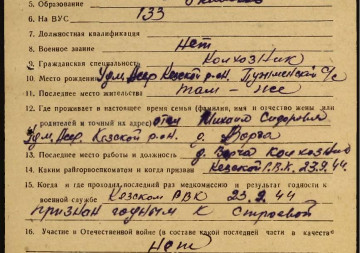 5. Образование
6. На ВУС 133
7. Должностная квалификация
8. Военное звание Нет
9. Гражданская специальность Колхозник
10. Место рождения Удм. Асср Кезской р-он. Пужменской с/с
11. Последнее место жительства там - же
12. Где проживает в настоящее время семья (фамилия, имя и отчество жены или
родителей и точный их адрес) отец Михаил Сидорович
Удм. Асср. Кезской р-он. д. Ворча
13. Последнее место работы и должность д. Ворча Колхозник
14. Каким райгорвоенкоматом и когда призван Кезской Р.В.К. 23.9.44
15. Когда и где проходил последний раз медкомиссию и результат годности к
военной службе Кезском РВК 23.9.44
признан годным к строевой
16. Участие в Отечественной войне (в составе какой последней части в качестве
Нет